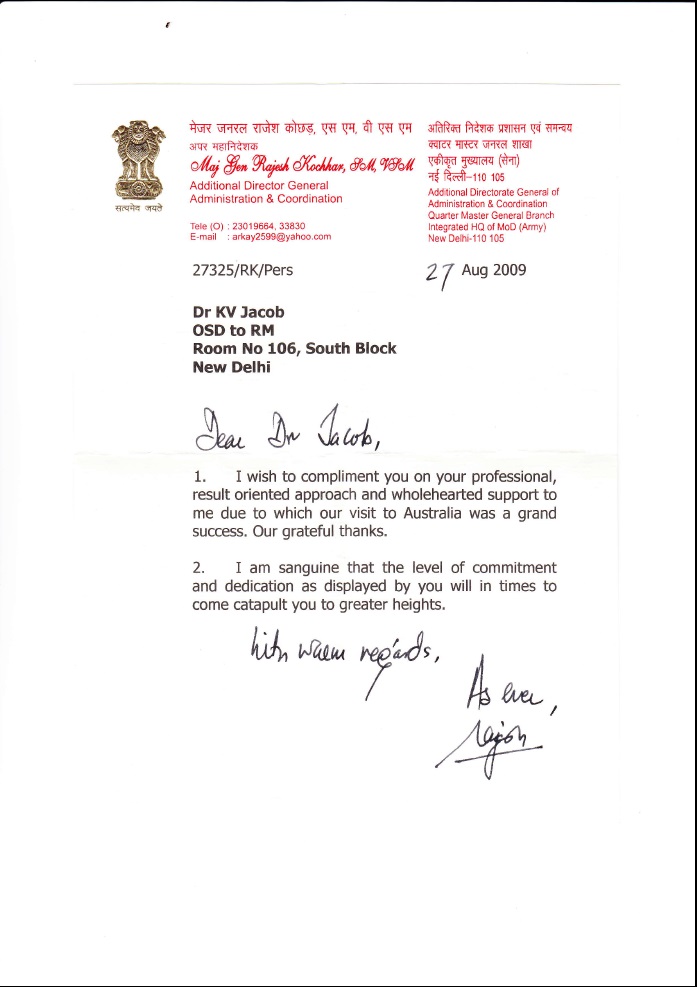 सत्यमेव जयते
मेजर जनरल राजेश कोछड़, एस एम, वी एस एम
अपर महानिदेशक
Maj Gen Rajesh Kochhar, SM, VSM
Additional Director General
Administration & Coordination
Tele (O) : 23019664, 33830
E-mail : arkay2599@yahoo.com
अतिरिक्त निदेशक प्रशासन एवं समन्वय
क्वाटर मास्टर जनरल शाखा
एकीकृत मुख्यालय (सेना)
नई दिल्ली–110 105
Additional Directorate General of
Administration & Coordination
Quarter Master General Branch
Integrated HQ of MoD (Army)
New Delhi-110 105
27325/RK/Pers
27 Aug 2009
Dr KV Jacob
OSD to RM
Room No 106, South Block
New Delhi
Dear Dr Jacob,
1. I wish to compliment you on your professional,
result oriented approach and wholehearted support to
me due to which our visit to Australia was a grand
success. Our grateful thanks.
2. I am sanguine that the level of commitment
and dedication as displayed by you will in times to
come catapult you to greater heights.
With warm regards,
As ever,
Rajesh